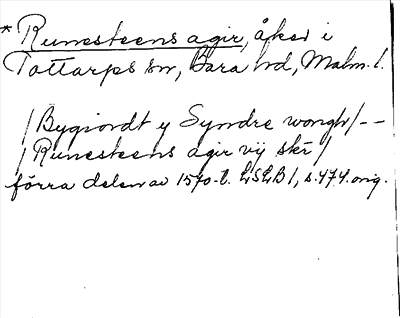 * Runesteens agir, åker i
Tottarps sn, Bara hd, Malm. l.
/Bygiordt y Syndre wongh/--
/Runesteens agir vij skr/
förra delen av 1570-t. LSLB 1, s. 474. orig.